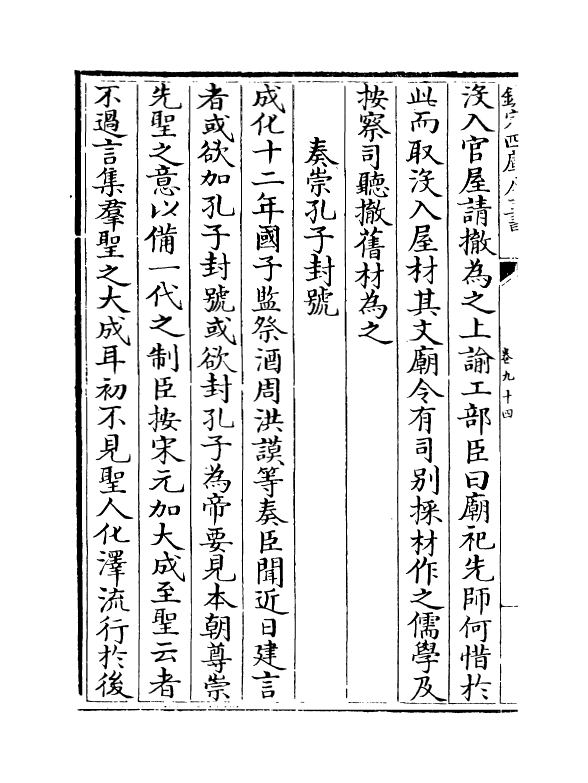 欽定四庫全書
卷九十四
沒入官屋請撤為之上諭工部臣曰廟祀先師何惜於
此而取沒入屋材其文廟令有司别採材作之儒學及
按察司聽撤舊材為之
奏崇孔子封號
成化十二年國子監祭酒周洪謨等奏臣聞近日建言
者或欲加孔子封號或欲封孔子為帝要見本朝尊崇
先聖之意以備一代之制臣按宋元加大成至聖云者
不過言集羣聖之大成耳初不見聖人化澤流行於後